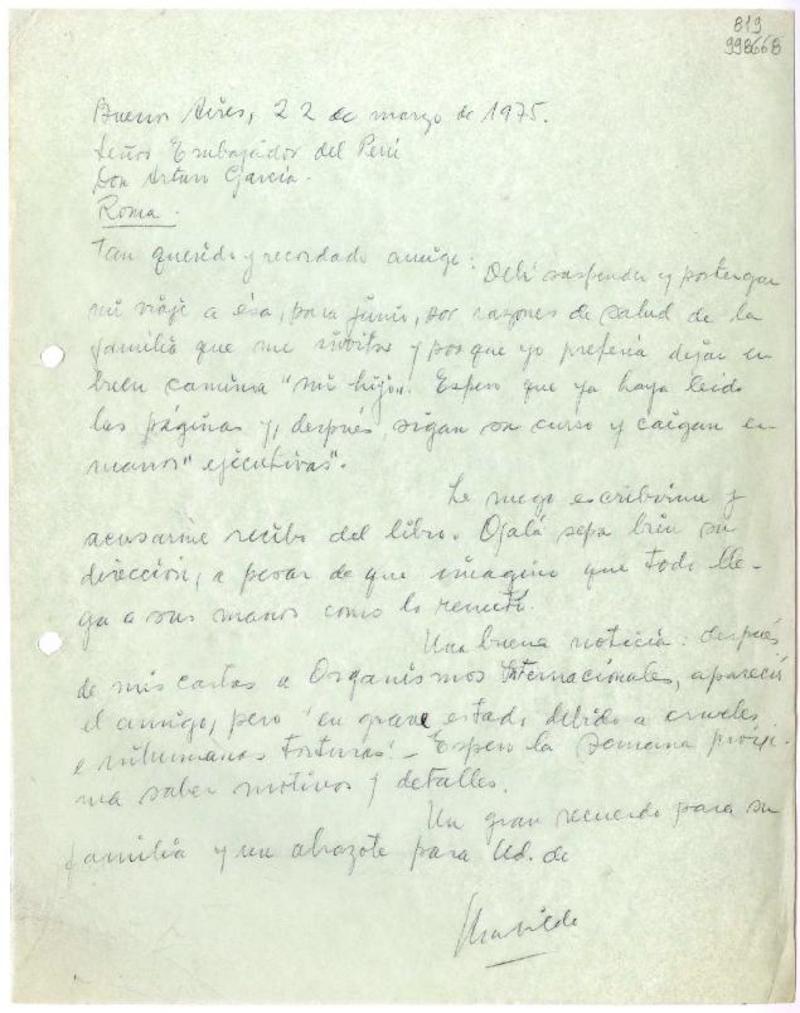 819
998668
Buenos Aires, 22 de marzo de 1975.
Señor Embajador del Perú
Don Arturo García.
Roma.
Tan querido y recordado amigo: Debí suspender y postergar
mi viaje a ésa, para junio, por razones de salud de la
familia que me invitar y porque yo prefería dejar en
buen camino "mi hijo". Espero que ya haya leído
las páginas y, después, sigan su curso y caigan en
manos "ejecutivas".
Le ruego escribirme y
acusarme recibo del libro. Ojalá sepa bien su
dirección, a pesar de que imagino que todo lle-
ga a sus manos como lo remití.
Una buena noticia: después
de mis cartas a Organismos Internacionales, apareció
el amigo, pero "en grave estado debido a crueles
e inhumanas torturas". - Espero la semana próxi-
ma saber motivos y detalles.
Un gran recuerdo para su
familia y un abrazote para Ud. de